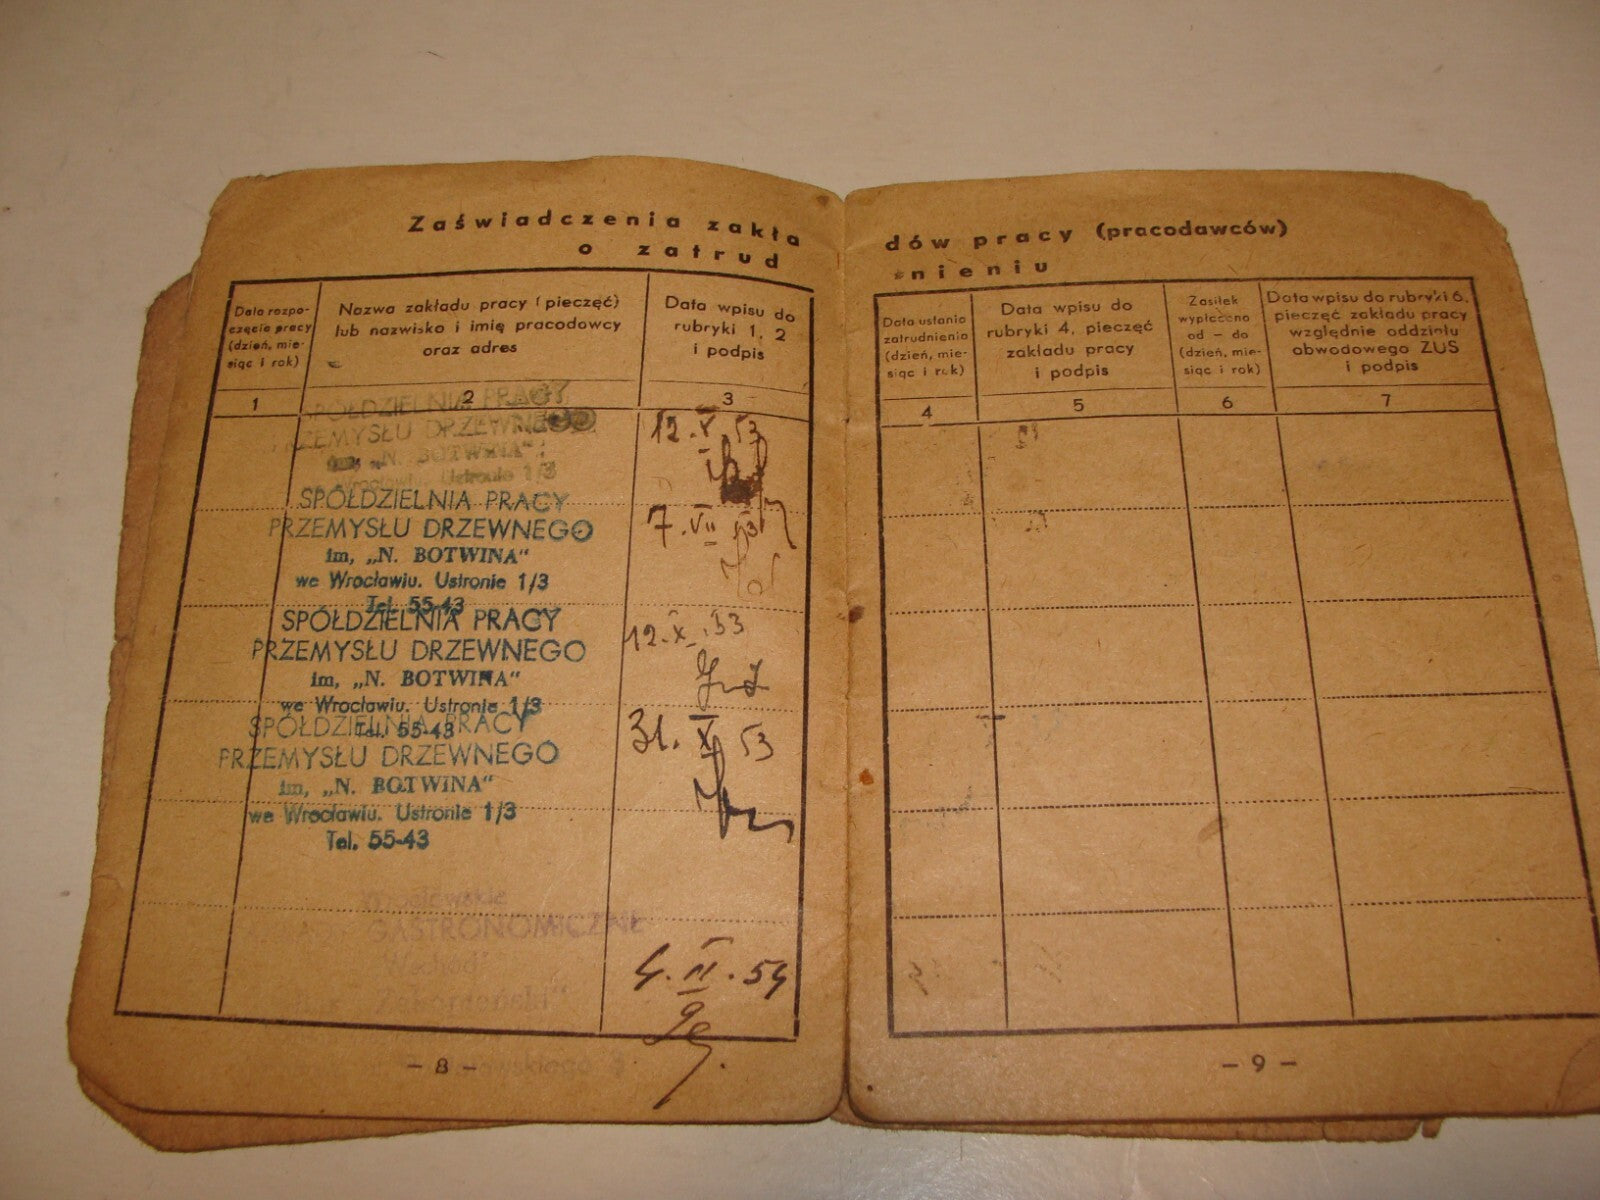 Zaświadczenia zakła
o zatrud
Data rozpo-
częcia pracy
(dzień, mie-
siąc i rok)
Nazwa zakładu pracy (pieczęć)
lub nazwisko i imię pracodawcy
oraz adres
Data wpisu do
rubryki 1, 2
i podpis
1
2
3
SPÓŁDZIELNIA PRACY
PRZEMYSŁU DRZEWNEGO
im, „N. BOTWINA"
we Wrocławiu. Ustronie 1/3
12.X.53
SPÓŁDZIELNIA PRACY
PRZEMYSŁU DRZEWNEGO
im, „N. BOTWINA"
we Wrocławiu. Ustronie 1/3
Tel. 55-43
7.VII.53
SPÓŁDZIELNIA PRACY
PRZEMYSŁU DRZEWNEGO
im, „N. BOTWINA"
we Wrocławiu. Ustronie 1/3
Tel. 55-43
12.X.53
SPÓŁDZIELNIA PRACY
PRZEMYSŁU DRZEWNEGO
im, „N. BOTWINA"
we Wrocławiu. Ustronie 1/3
Tel. 55-43
31.X 53
Wrocławskie
GASTRONOMICZNE
4.II.54
– 8 –
dów pracy (pracodawców)
nieniu
Data ustania
zatrudnienia
(dzień, mie-
siąc i rok)
Data wpisu do
rubryki 4, pieczęć
zakładu pracy
i podpis
Zasiłek
wypłacono
od – do
(dzień, mie-
siąc i rok)
Data wpisu do rubryki 6,
pieczęć zakładu pracy
względnie oddziału
obwodowego ZUS
i podpis
4
5
6
7
– 9 –